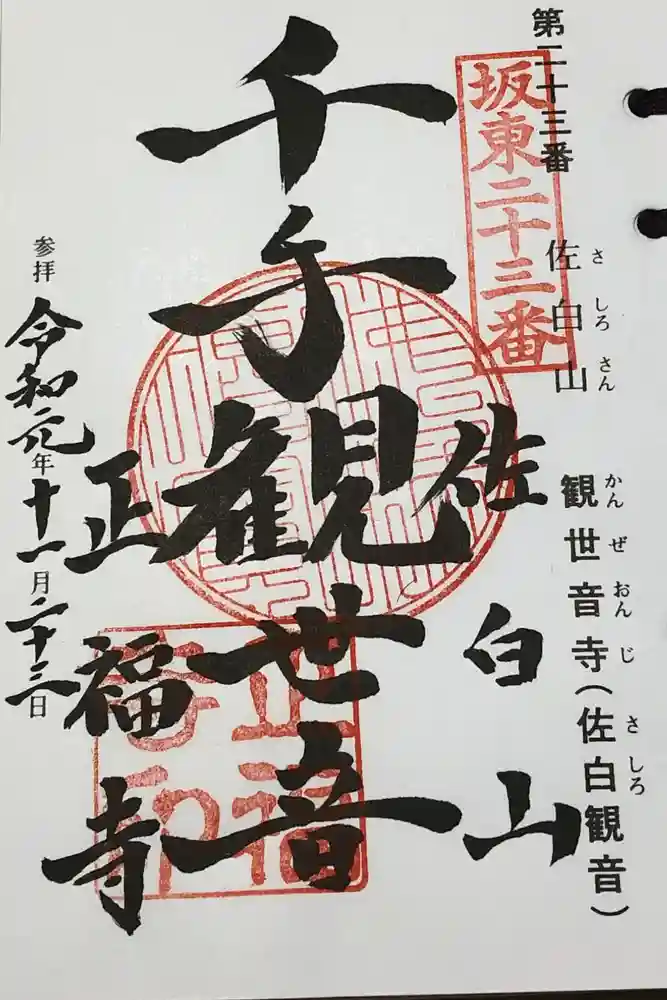 第二十三番
佐白山
さしろさん
観世音寺(佐白観音)
かんぜおんじ
さしろ
坂東二十三番
佐白山
千手観世音
正福寺
正福寺印
参拝
令和元年十一月二十三日